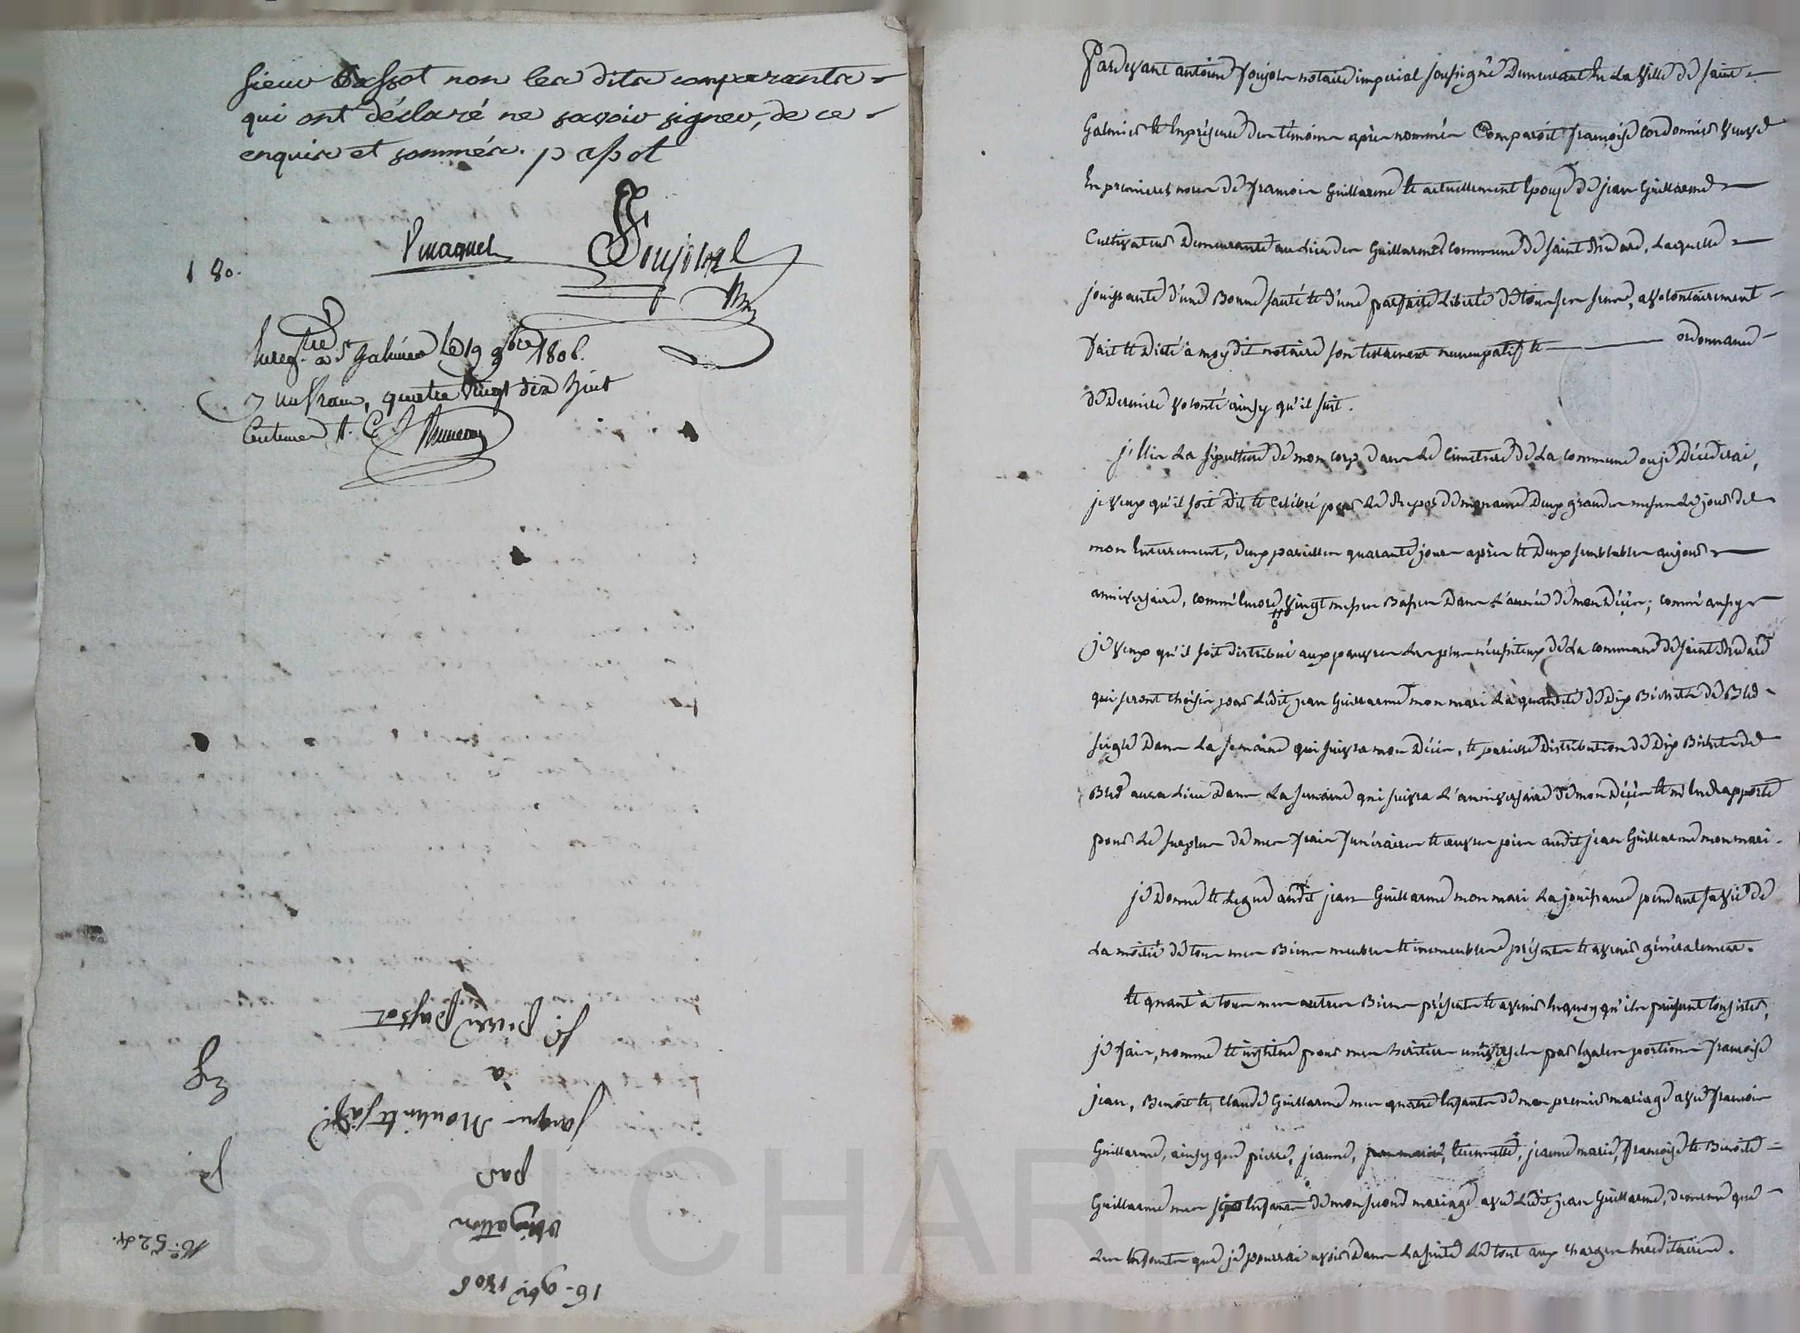 sieur Passot non les dits comparants
qui ont déclaré ne savoir signer, de ce
enquis et sommés. passot
Poujol
180.
Enreg.tré à St Galmier le 19 9bre 1806.
un franc, quatre vingt dix huit
Centimes
Pardevant antoine Poujol notaire imperial soussigné Demeurant En La Ville de saint
Galmier Et Enprésence des témoins après nommés Comparoit françoise cordonnier veuve
En premieres noces de françois Guillarme Et actuellement Epouse de jean Guillarme
Cultivateur Demeurante au Lieu des Guillarmes commune de saint Médard, Laquelle
jouissante d'une Bonne santé Et d'une parfaite Liberté de tous ses sens, a volontairement
fait Et Dicté à moy dit notaire son testament nuncupatif Et ordonnance
de Derniere volonté ainsy qu'il suit.
j'Elis La sépulture de mon corp dans Le cimetiere de La commune ou je Décéderai,
je veux qu'il soit Dit Et Célébré pour Le Repos de mon ame Deux grandes messes Le jour de
mon Enterrement, deux pareilles quarante jours après Et Deux semblables au jour
anniversaire, comme Encore vingt messes Basses Dans L'année de mon Décès; comme aussy
je veux qu'il soit distribué aux pauvres Les plus nécessiteux de La commune de saint Médard
qui seront choisis par Ledit jean Guillarme mon mari La quantité de Dix Bichets de Bled
seigle Dans La semaine qui suivra mon Décès, Et pareille Distribution de Dix Bichets de
Bled aura Lieu Dans La semaine qui suivra L'anniversaire de mon Décès Et m'En Rapporte
pour Le surplus de mes frais funéraires Et œuvres pies audit jean Guillarme mon mari.
je Donne Et Legue audit jean Guillarme mon mari La jouissance pendant sa vie de
La moitié de tous mes Biens meubles Et immeubles présents Et avenir généralement.
Et quant à tous mes autres Biens présents Et avenir En quoy qu'ils puissent Consister,
je fais, nomme Et institue pour mes héritiers universels par Egales portions françoise
jean, Benoit Et Claude Guillarme mes quatre Enfants de mon premier mariage avec françois
Guillarme, ainsy que pierre, jeanne, Etiennette, jeanne marie, françoise Et Benoite
Guillarme mes six Enfants de mon second mariage avec Ledit jean Guillarme, de meme que
Les Enfants que je pourrai avoir Dans La suite Le tout aux charges héréditaires.
16 9bre 1806
obligation
par
jacques
à
Sr. pierre Passot
No. 52
Pascal CHARETRON